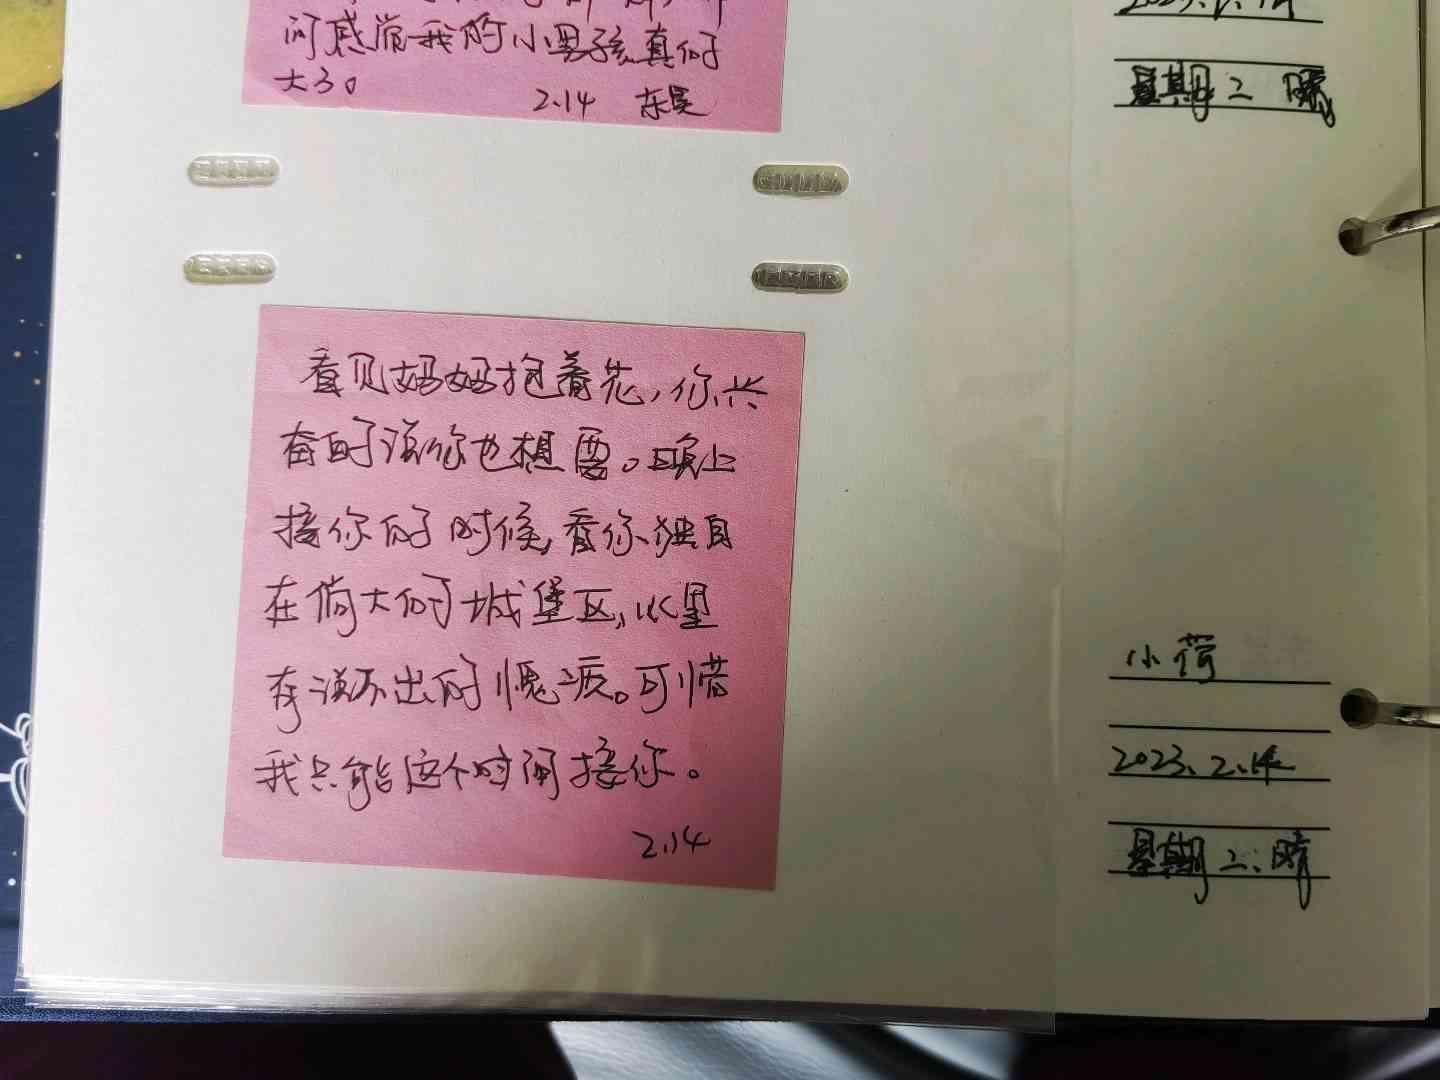 间感觉我的小男孩真的
大了。
2.14 东昊
星期二 晴
看见妈妈抱着花,你兴
奋的说你也想要。晚上
接你的时候,看你独自
在偌大的城堡区,心里
有说不出的愧疚。可惜
我只能这个时间接你。
2.14
小荷
2023.2.14
星期二、晴